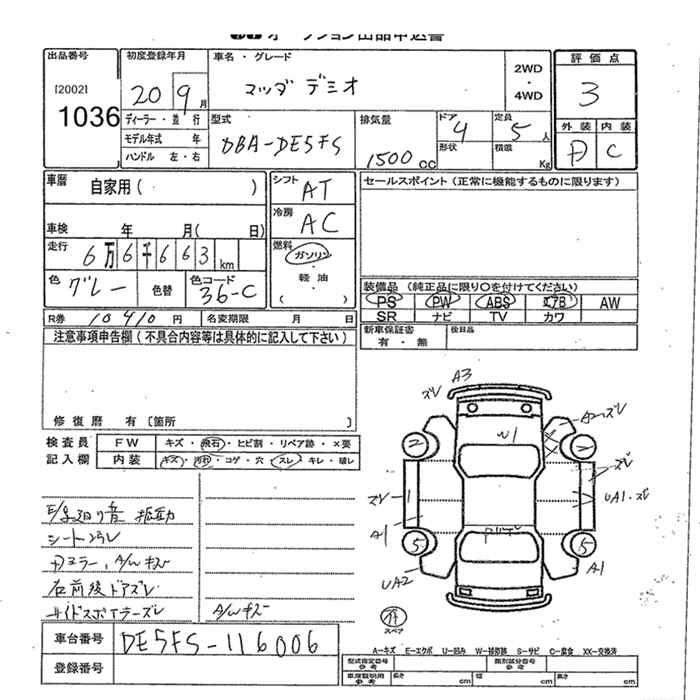 オークション出品申込書
出品番号 初度登録年月 車名・グレード 評価点
[2002] 1036
20 9月 マツダ デミオ 2WD ・ 4WD 3
ディーラー・並行 型式 DBA-DE5FS 排気量 1500 CC ドア 4 定員 5人
モデル年式 年 形状 積載 Kg 外装 内装
ハンドル 左・右 D C
車歴 自家用( ) シフト AT セールスポイント(正常に機能するものに限ります)
車検 年 月( 日) 冷房 AC
走行 6万6千663km 燃料 ガソリン・軽油 ( )
色 グレー 色替 色コード 36-C
装備品(純正品に限り○を付けてください)
PS PW ABS エアB AW
SR ナビ TV カワ
R券 10410円 名変期限 月 日 新車保証書 有・無 後日品
注意事項申告欄(不具合内容等は具体的に記入して下さい)
修復歴 有〔箇所 〕
検査員 FW キズ・飛石・ヒビ割・リペア跡・×要
記入欄 内装 キズ・汚れ・コゲ・穴・スレ・キレ・破レ
E/g廻り音 振動
シート汚レ
Dミラー, A/wキズ
右前後ドアズレ
サイドスポイラーズレ A/wキズ
ズレ A3
W1
A2ズレ
2 2
ズレ
ズレ 1 UA1・ズレ
A1
5 5
UA2 A1
スペア
車台番号 DE5FS-116006
登録番号
A-キズ E-エクボ U-凹み W-補修跡 S-サビ C-腐食 XX-交換済
型式指定番号 参考 類別区分番号 参考
車庫証明用 参考 長さ cm 幅 cm 高さ cm